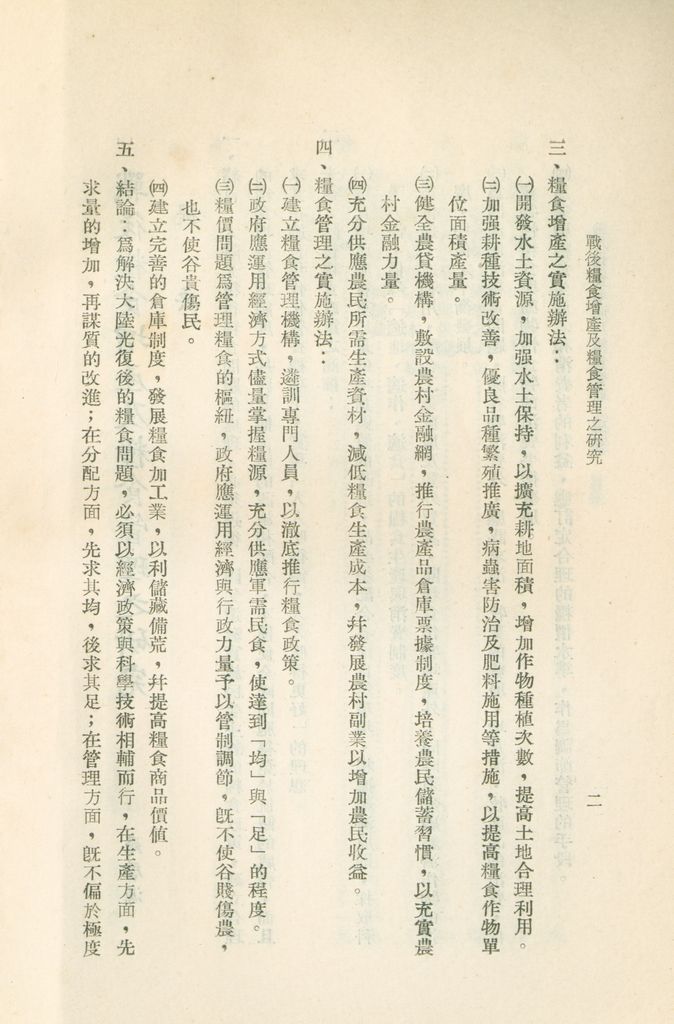 戰後糧食增產及糧食管理之研究
二
三、糧食增產之實施辦法：
㈠開發水土資源，加强水土保持，以擴充耕地面積，增加作物種植次數，提高土地合理利用。
㈡加强耕種技術改善，優良品種繁殖推廣，病蟲害防治及肥料施用等措施，以提高糧食作物單
位面積產量。
㈢健全農貸機構，敷設農村金融網，推行農產品倉庫票據制度，培養農民儲蓄習慣，以充實農
村金融力量。
㈣充分供應農民所需生產資材，減低糧食生產成本，幷發展農村副業以增加農民收益。
四、糧食管理之實施辦法：
㈠建立糧食管理機構，遴訓專門人員，以澈底推行糧食政策。
㈡政府應運用經濟方式儘量掌握糧源，充分供應軍需民食，使達到「均」與「足」的程度。
㈢糧價問題爲管理糧食的樞紐，政府應運用經濟與行政力量予以管制調節，旣不使谷賤傷農，
也不使谷貴傷民。
㈣建立完善的倉庫制度，發展糧食加工業，以利儲藏備荒，幷提高糧食商品價值。
五、結論：爲解決大陸光復後的糧食問題，必須以經濟政策與科學技術相輔而行，在生產方面，先
求量的增加，再謀質的改進；在分配方面，先求其均，後求其足；在管理方面，旣不偏於極度